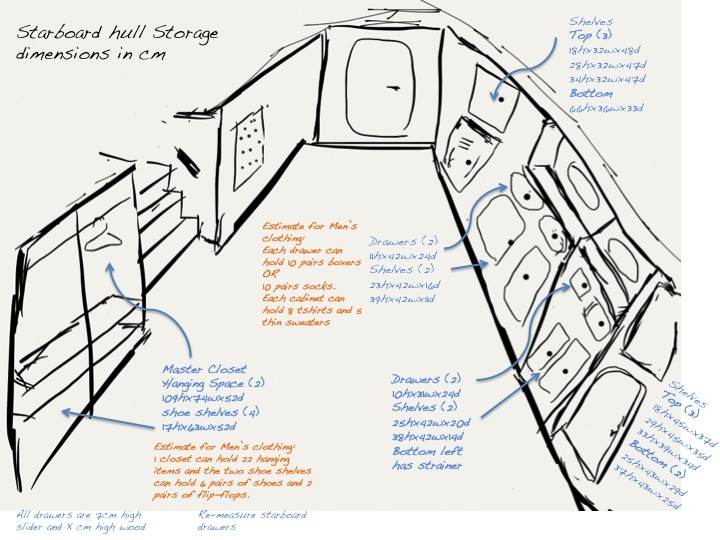 Starboard hull Storage
dimensions in cm
Shelves
Top (3)
18hx32wx48d
28hx32wx47d
34hx32wx47d
Bottom
66hx36wx33d
Estimate for Men's
clothing:
Each drawer can
hold 10 pairs boxers
OR
10 pairs socks.
Each cabinet can
hold 8 tshirts and 5
thin sweaters
Drawers (2)
11hx42wx24d
Shelves (2)
23hx42wx16d
39hx42wx11d
Master Closet
Hanging Space (2)
109hx74wx52d
shoe shelves (4)
17hx63wx52d
Estimate for Men's clothing:
1 closet can hold 22 hanging
items and the two shoe shelves
can hold 6 pairs of shoes and 2
pairs of flip-flops.
Drawers (2)
10hx31wx24d
Shelves (2)
25hx42wx20d
38hx42wx14d
Bottom left
has strainer
Shelves
Top (3)
18hx45wx37d
29hx45wx35d
33hx39wx34d
Bottom (2)
25hx43wx29d
37hx43wx25d
All drawers are 7cm high
slider and X cm high wood
Re-measure starboard
drawers